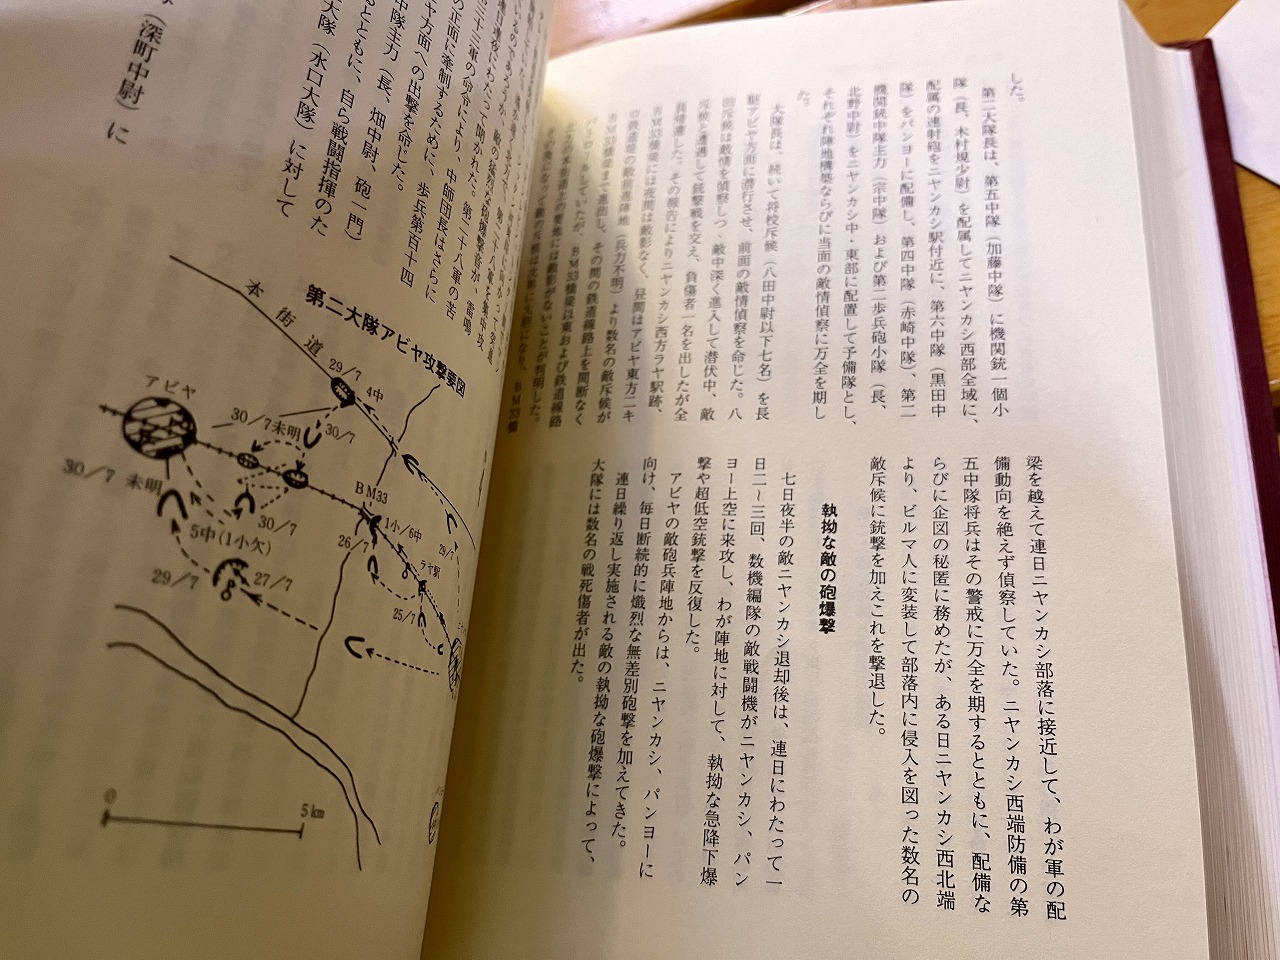 した。
第二大隊長は、第五中隊（加藤中隊）に機関銃一個小
隊（長、木村規少尉）を配属してニヤンカシ西部全域に、
配属の連射砲をニヤンカシ駅付近に、第六中隊（黒田中
隊）をパンヨーに配備し、第四中隊（赤崎中隊）、第二
機関銃中隊主力（宗中隊）および第二歩兵砲小隊（長、
北野中尉）をニヤンカシ中・東部に配置して予備隊とし、
それぞれ陣地構築ならびに当面の敵情偵察に万全を期し
た。
大隊長は、続いて将校斥候（八田中尉以下七名）を長
駆アビヤ方面に潜行させ、前面の敵情偵察を命じた。八
田斥候は敵情を偵察しつゝ敵中深く進入して潜伏中、敵
斥候と遭遇して銃撃戦を交え、負傷者一名を出したが全
員帰還した。その報告によりニヤンカシ西方ラヤ駅跡、
ＢＭ33橋梁には夜間は敵影なく、昼間はアビヤ東方二キ
ロ鉄道橋の敵前進陣地（兵力不明）より数名の敵斥候が
ＢＭ33橋梁まで進出し、その間の鉄道線路上を間断なく
パトロールしていたが、ＢＭ33橋梁以東および鉄道線路
梁を越えて連日ニヤンカシ部落に接近して、わが軍の配
備動向を絶えず偵察していた。ニヤンカシ西端防備の第
五中隊将兵はその警戒に万全を期するとともに、配備な
らびに企図の秘匿に務めたが、ある日ニヤンカシ西北端
より、ビルマ人に変装して部落内に侵入を図った数名の
敵斥候に銃撃を加えこれを撃退した。
執拗な敵の砲爆撃
七日夜半の敵ニヤンカシ退却後は、連日にわたって一
日二〜三回、数機編隊の敵戦闘機がニヤンカシ、パン
ヨー上空に来攻し、わが陣地に対して、執拗な急降下爆
撃や超低空銃撃を反復した。
アビヤの敵砲兵陣地からは、ニヤンカシ、パンヨーに
向け、毎日断続的に熾烈な無差別砲撃を加えてきた。
連日繰り返し実施される敵の執拗な砲爆撃によって、
大隊には数名の戦死傷者が出た。
連日連夜にわたって聞かれた。第二十八軍の苦
三十三軍の命令により、中師団長はさらに
の正面に牽制するために、歩兵第百十四
ヤ方面への出撃を命じた。
中隊主力（長、畑中尉、砲一門）
るとともに、自ら戦闘指揮のた
大隊（水口大隊）に対して
（深町中尉）に
第二大隊アビヤ攻撃要図
本街道
29/7
4中
アビヤ
30/7未明
30/7
30/7 未明
30/7
BM33
1小/6中
5中(1小欠)
26/7
29/7
ラヤ駅
29/7
27/7
25/7
0
5km